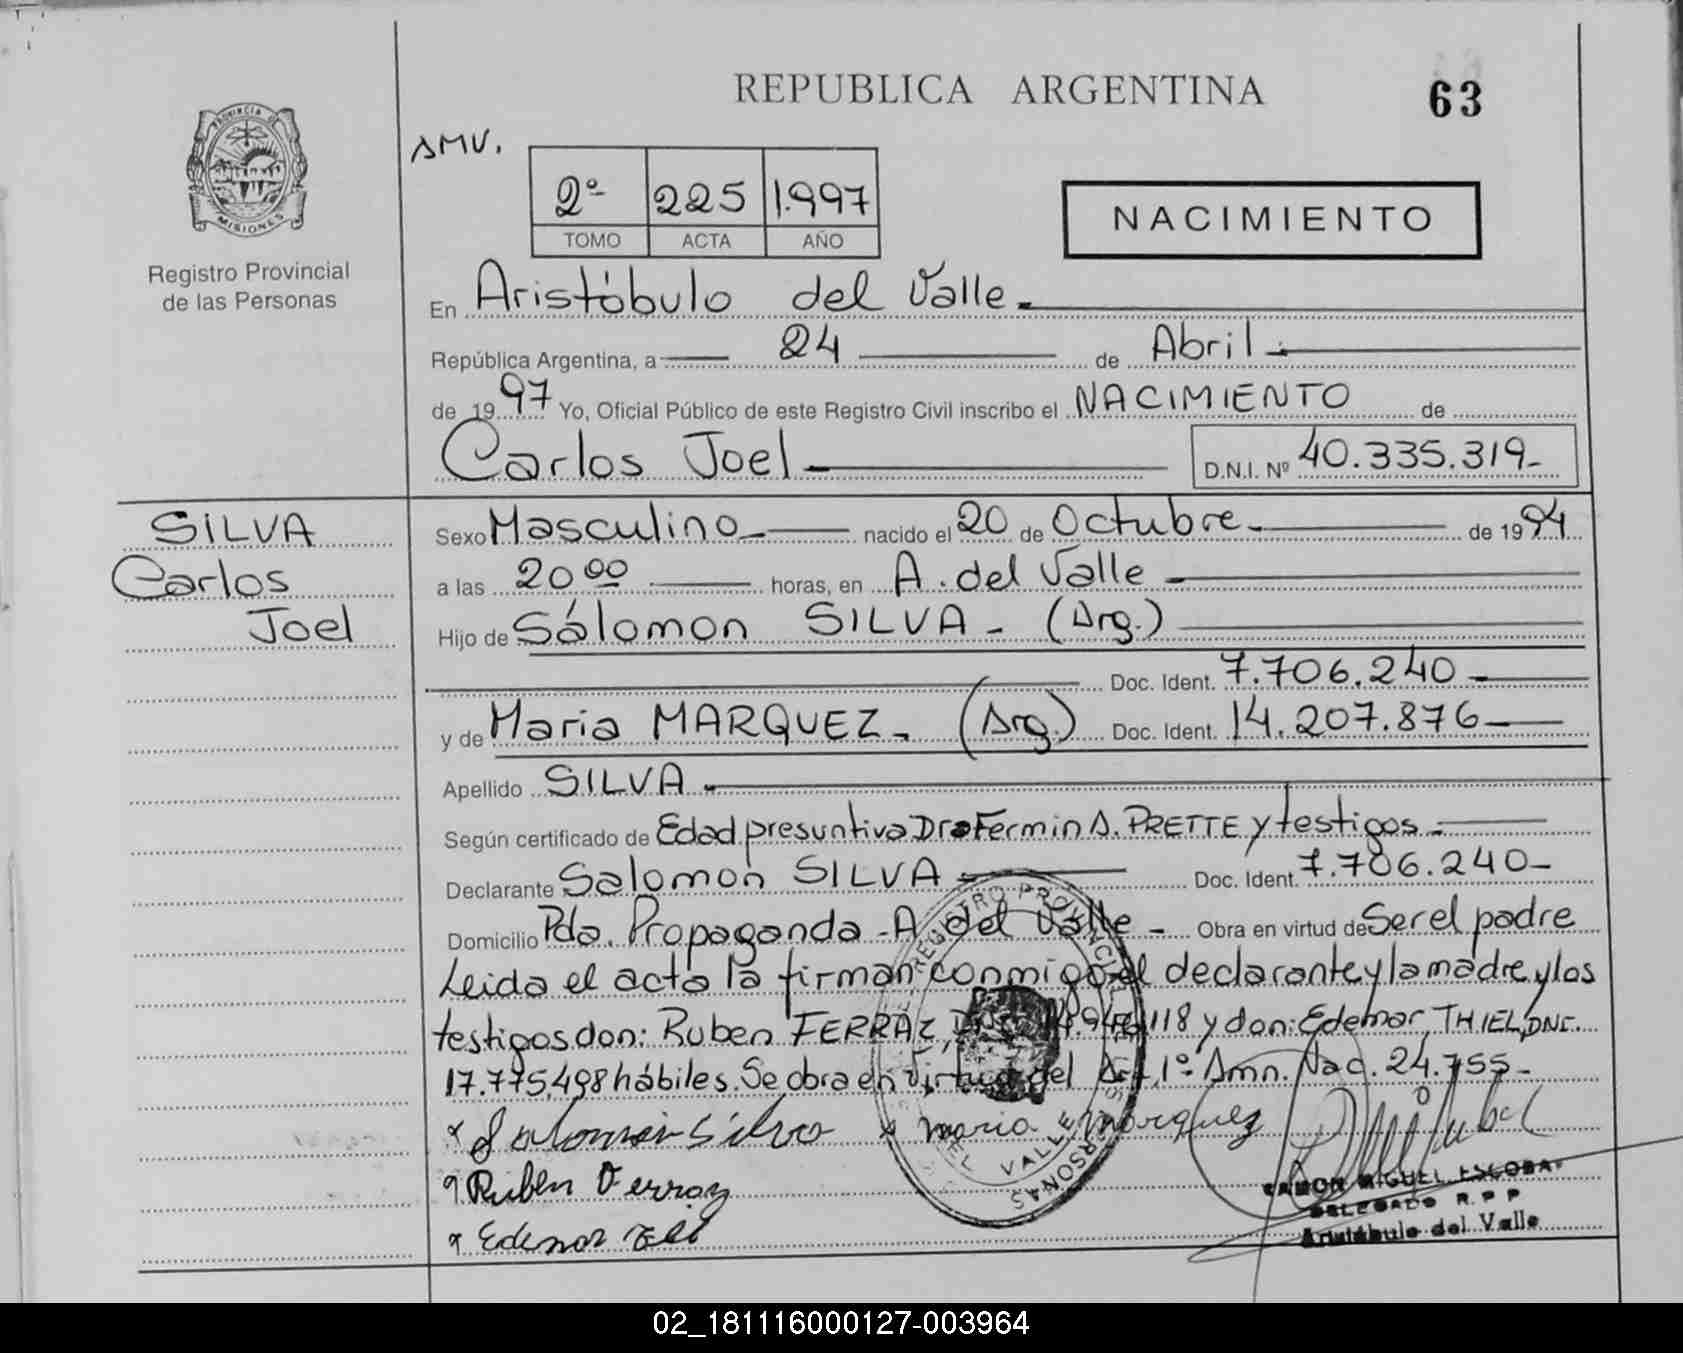 REPUBLICA ARGENTINA
63
PROVINCIA DE
MISIONES
Registro Provincial
de las Personas
AMV.
2º 225 1.997
TOMO ACTA AÑO
NACIMIENTO
En Aristóbulo del Valle.
República Argentina, a 24 de Abril
de 1997 Yo, Oficial Público de este Registro Civil inscribo el NACIMIENTO de
Carlos Joel
D.N.I. Nº 40.335.319-
SILVA
Carlos
Joel
Sexo Masculino nacido el 20 de Octubre de 1994
a las 20 00 horas, en A. del Valle
Hijo de Sálomon SILVA - (Arg.)
Doc. Ident. 7.706.240
y de Maria MARQUEZ. (Arg.) Doc. Ident. 14.207.876
Apellido SILVA
Según certificado de Edad presuntiva Dr. Fermin A. PRETTE y testigos
Declarante Salomon SILVA Doc. Ident. 7.706.240-
Domicilio Pda. Propaganda - A. del Valle - Obra en virtud de Ser el padre
Leida el acta la firman conmigo el declarante y la madre y los
testigos don: Ruben FERRAZ, 118 y don: Edemar THIEL, DNI.
17.775.498 hábiles. Se obra en virtud del Art. 1º Amn. Nac. 24.755-
x Salomon Silva x Maria Marquez
Ruben Ferraz
x Edemar
REGISTRO PROVINCIAL
PERSONAS
DEL VALLE
RAMON MIGUEL ESCOBAR
DELEGADO R.P.P
Aristóbulo del Valle
02_181116000127-003964